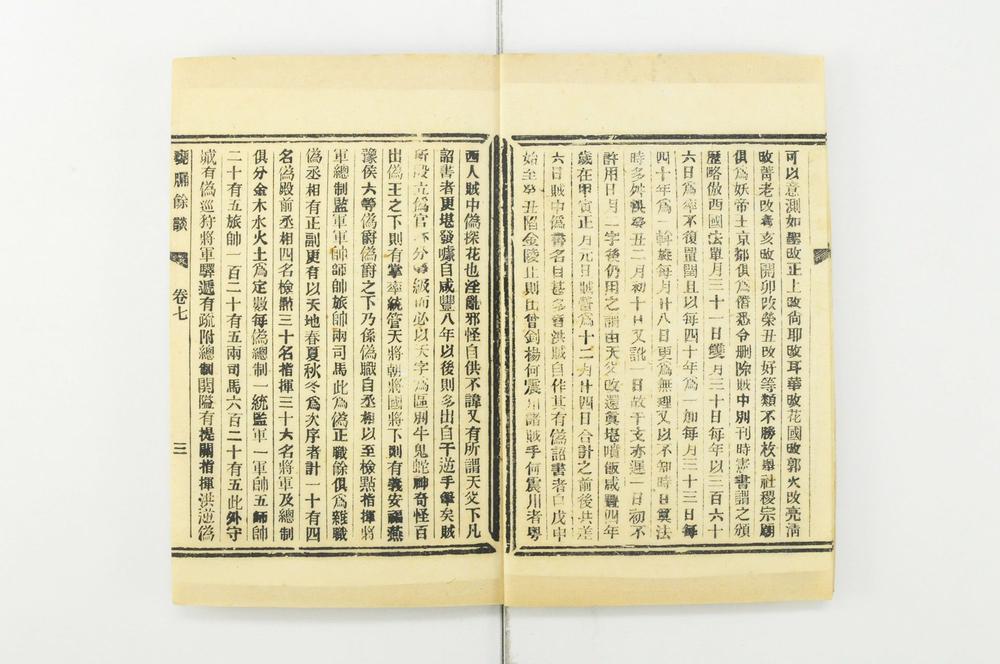 可以意測如聖改正上改尙耶改耳華改花國改郭火改亮淸
改菁老改考亥改開卯改榮丑改好等類不勝枚舉社稷宗廟
俱爲妖帝土京都俱爲僭悉令删除賊中別刊時憲書謂之頒
歷略倣西國法單月三十一日雙月三十日每年以三百六十
六日爲率不復置閏且以每四十年爲一加每月三十三日每
四十年爲一斡旋每月廿八日更爲無理又以不知時日算法
時多舛誤辛丑二月初十日又訛一日故干支亦遲一日初不
許用日月二字後仍用之謂由天父改還眞堪噴飯咸豐四年
歲在甲寅正月元日賊營爲十二月廿四日合計之前後共差
六日賊中僞書名目甚多洪賊自作其有僞詔書者自戊申
始至癸丑陷金陵止則出曾釗楊何震川諸賊手何震川者粵
西人賊中僞探花也淫亂邪怪自供不諱又有所謂天父下凡
詔書者更堪發噱自咸豐八年以後則多出自干逆手筆矣賊
所設立僞官不分等級而必以天字爲區別牛鬼蛇神奇怪百
出僞王之下則有掌率統管天將朝將國將下則有義安福燕
豫侯六等僞爵僞爵之下乃係僞職自丞相以至檢點指揮將
軍總制監軍軍帥師帥旅帥兩司馬此爲僞正職餘俱爲雜職
僞丞相有正副更有以天地春夏秋冬爲次序者計一十有四
名僞殿前丞相四名檢點三十名指揮三十六名將軍及總制
俱分金木水火土爲定數每僞總制一統監軍一軍帥五師帥
二十有五旅帥一百二十有五兩司馬六百二十有五此外守
城有僞巡狩將軍驛遞有疏附總制關隘有提關指揮洪逆僞
甕牖餘談
卷七
三